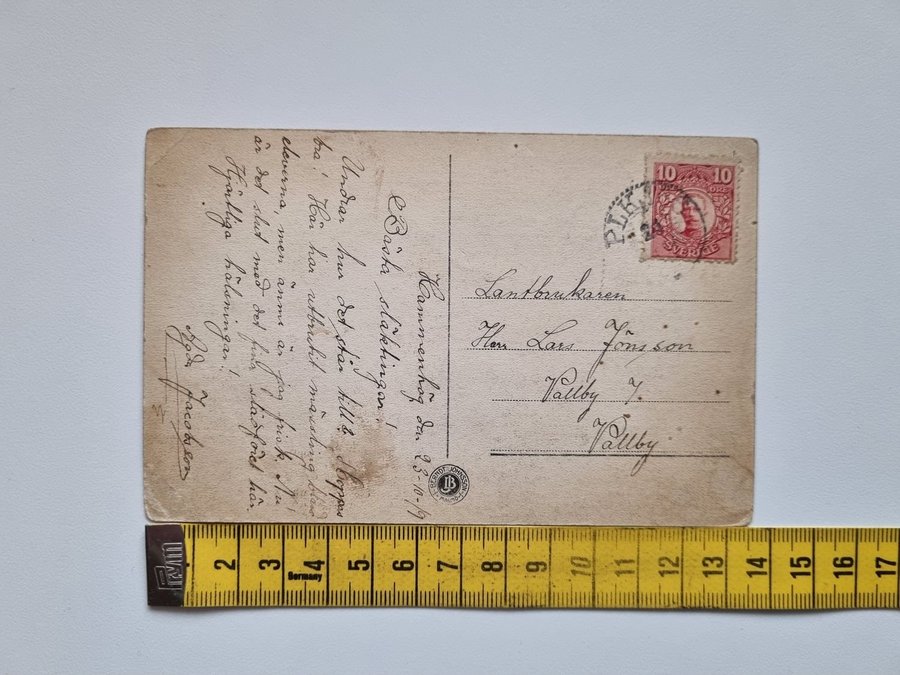 Hammenhög den 23-10-19
Bästa släktingar!
Undrar hur det står till? Hoppas
bra! Här har utbrutit mässling bland
eleverna, men ännu är jag frisk. Nu
är det slut med det fina slädföret här.
Hjärtliga hälsningar!
Agda Jacobsson
10 10
ÖRE
SVERIGE
24
Lantbrukaren
Herr Lars Jönsson
Vallby 7.
Vallby
BERNDT JOHNSSON
JB
MALMÖ
2 3 4 5 6 7 8 9 10 11 12 13 14 15 16 17
Germany